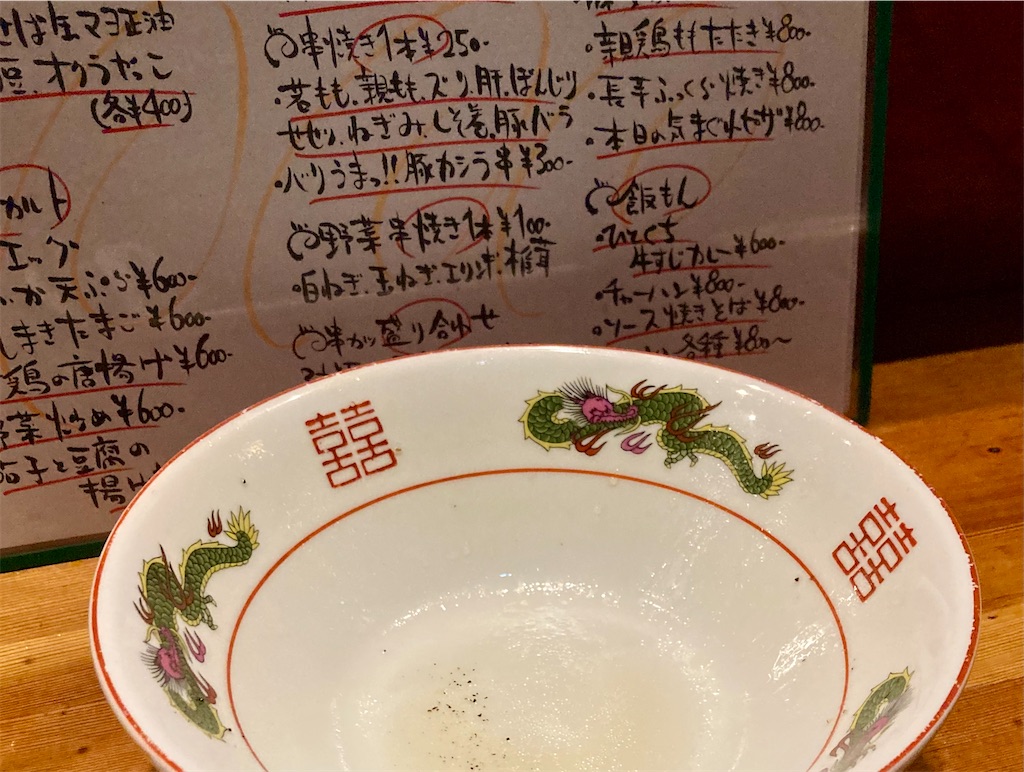 豆、オクラ、たこ
(各¥400)
エッグ
か天ぷら¥600-
しまきたまご¥600-
鶏の唐揚げ¥600-
野菜炒め¥600-
茄子と豆腐の
揚げ
串焼き1本¥250-
・若もも、親もも、ズリ、肝、ぼんじり
せせり、ねぎみ、しそ巻、豚バラ
・バリうまっ!!豚カシラ串¥300-
野菜串焼き1本¥100-
・白ねぎ、玉ねぎ、エリンギ、椎茸
串カツ盛り合わせ
・親鶏ももたたき¥800-
・長芋ふっくら焼き¥800-
・本日の気まぐれピザ¥800-
飯もん
・ひとくち
牛すじカレー¥600-
・チャーハン¥800-
・ソース焼きそば¥800-
各種¥800~
囍
囍